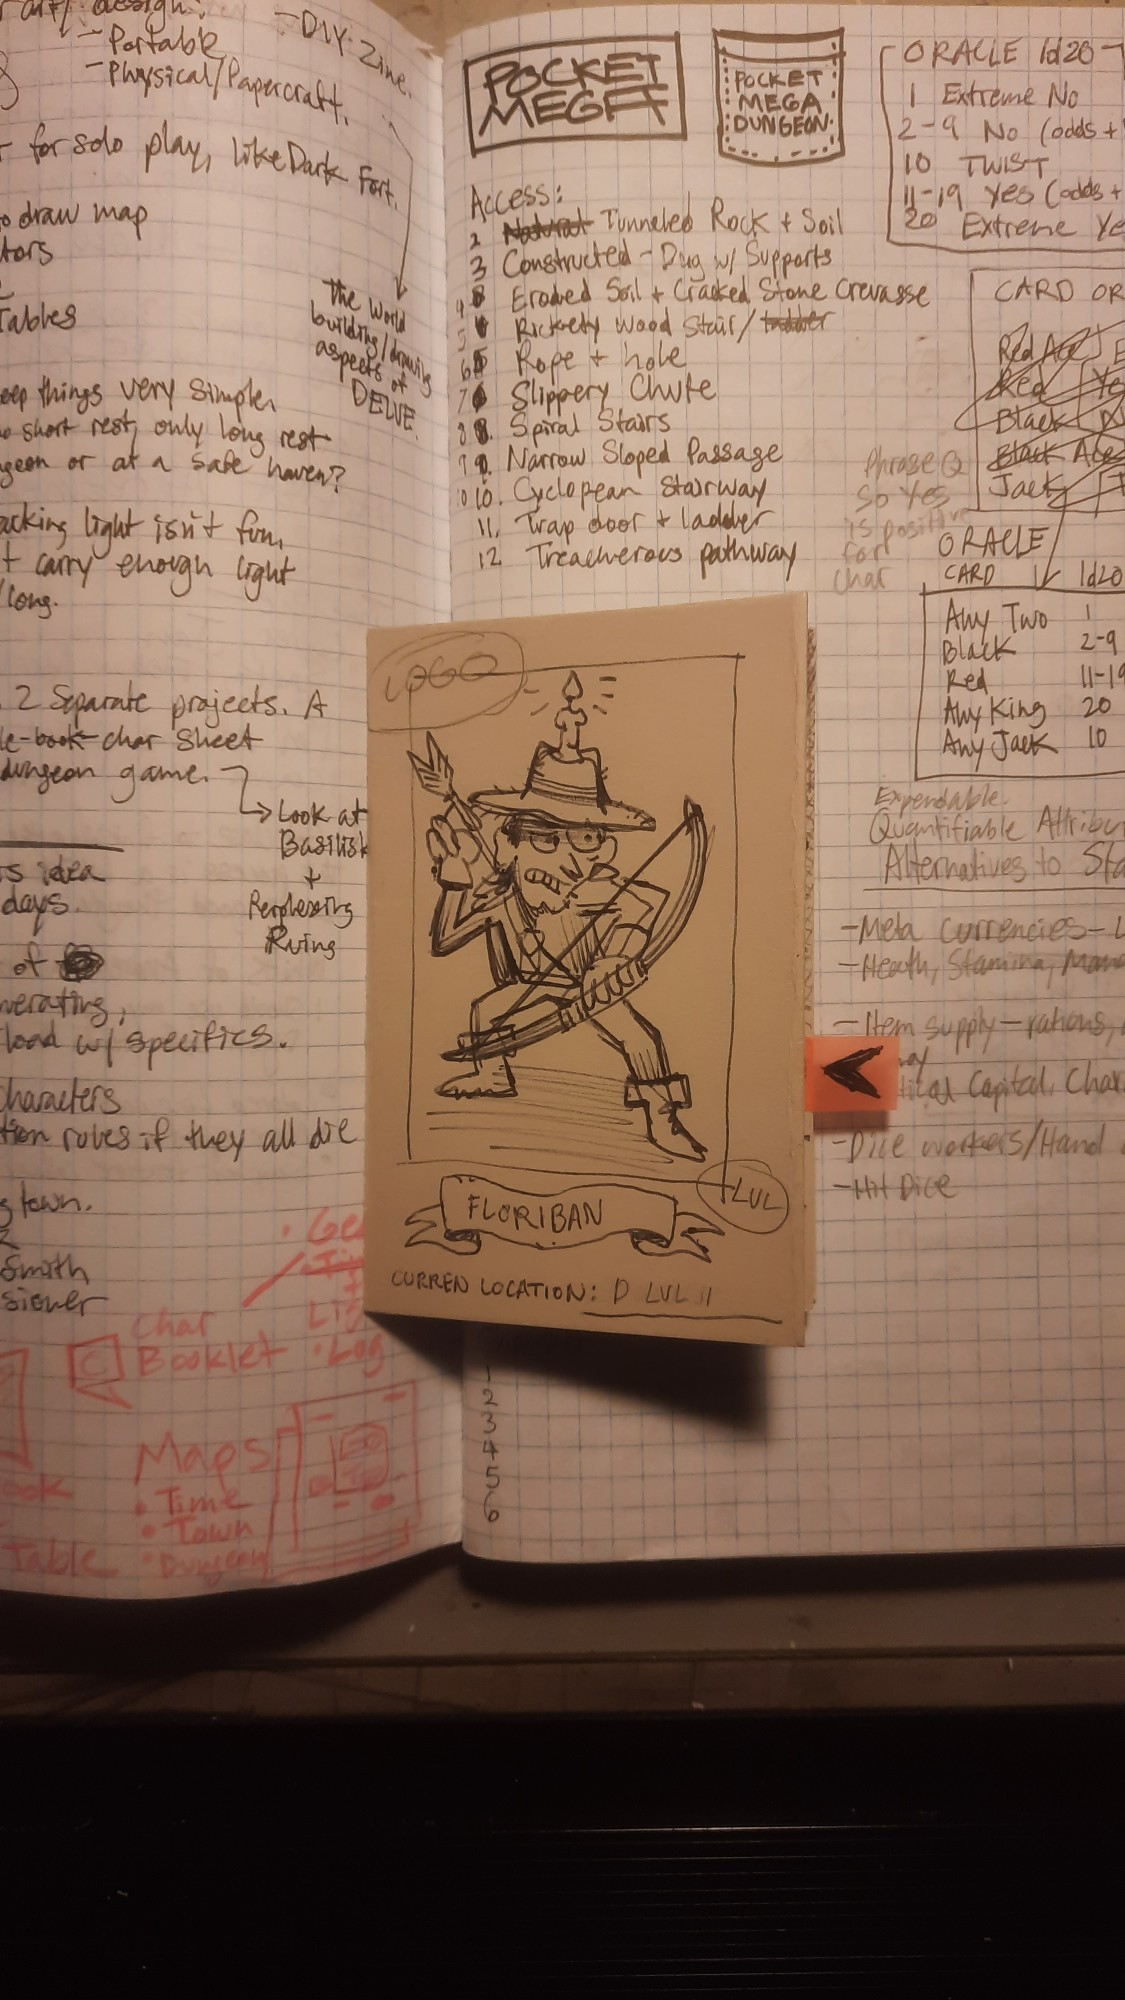 art/ design:
- Portable
- Physical/Papercraft.
- DIY Zine.
for solo play, like Dark Fort.
to draw map
tors
Tables
The World
building/drawing
aspects of
DELVE.
eep things very simple.
short rest, only long rest
geon or at a safe haven?
acking light isn't fun,
t carry enough light
/long.
2 Separate projects. A
le-book char sheet
dungeon game.
→ Look at
Basilisk
+
Perplexing
Ruins
s idea
days.
of
nerating,
load w/ specifics.
haracters
tion rules if they all die
g town.
Smith
sioner
Char
Booklet
• Log
Maps
• Time
• Town
• Dungeon
ook
Table
POCKET
MEGA
DUNGEON.
Access:
2 Natural Tunneled Rock + Soil
3 Constructed - Dug w/ Supports
4 Eroded Soil + Cracked Stone Crevasse
5 Rickety Wood Stair/ladder
6 Rope + hole
7 Slippery Chute
8 Spiral Stairs
9 Narrow Sloped Passage
10. Cyclopean Stairway
11. Trap door + ladder
12 Treacherous pathway
ORACLE 1d20
1 Extreme No
2-9 No (odds +
10 TWIST
11-19 Yes (odds +
20 Extreme Ye
CARD OR
Red Ace
Red
Black
Black Ace
Jack
Phrase Q
So Yes
is positive
for
Char
ORACLE
CARD 1d20
Any Two 1
Black 2-9
Red 11-19
Any King 20
Any Jack 10
Expendable
Quantifiable Attribu
Alternatives to Sta
- Meta currencies - L
- Heath, Stamina, Mana
- Item supply - rations,
tical Capital, Char
- Dice workers/Hand
- Hit Dice
LOGO
FLORIBAN
LVL
CURREN LOCATION: D LVL 11
1
2
3
4
5
6